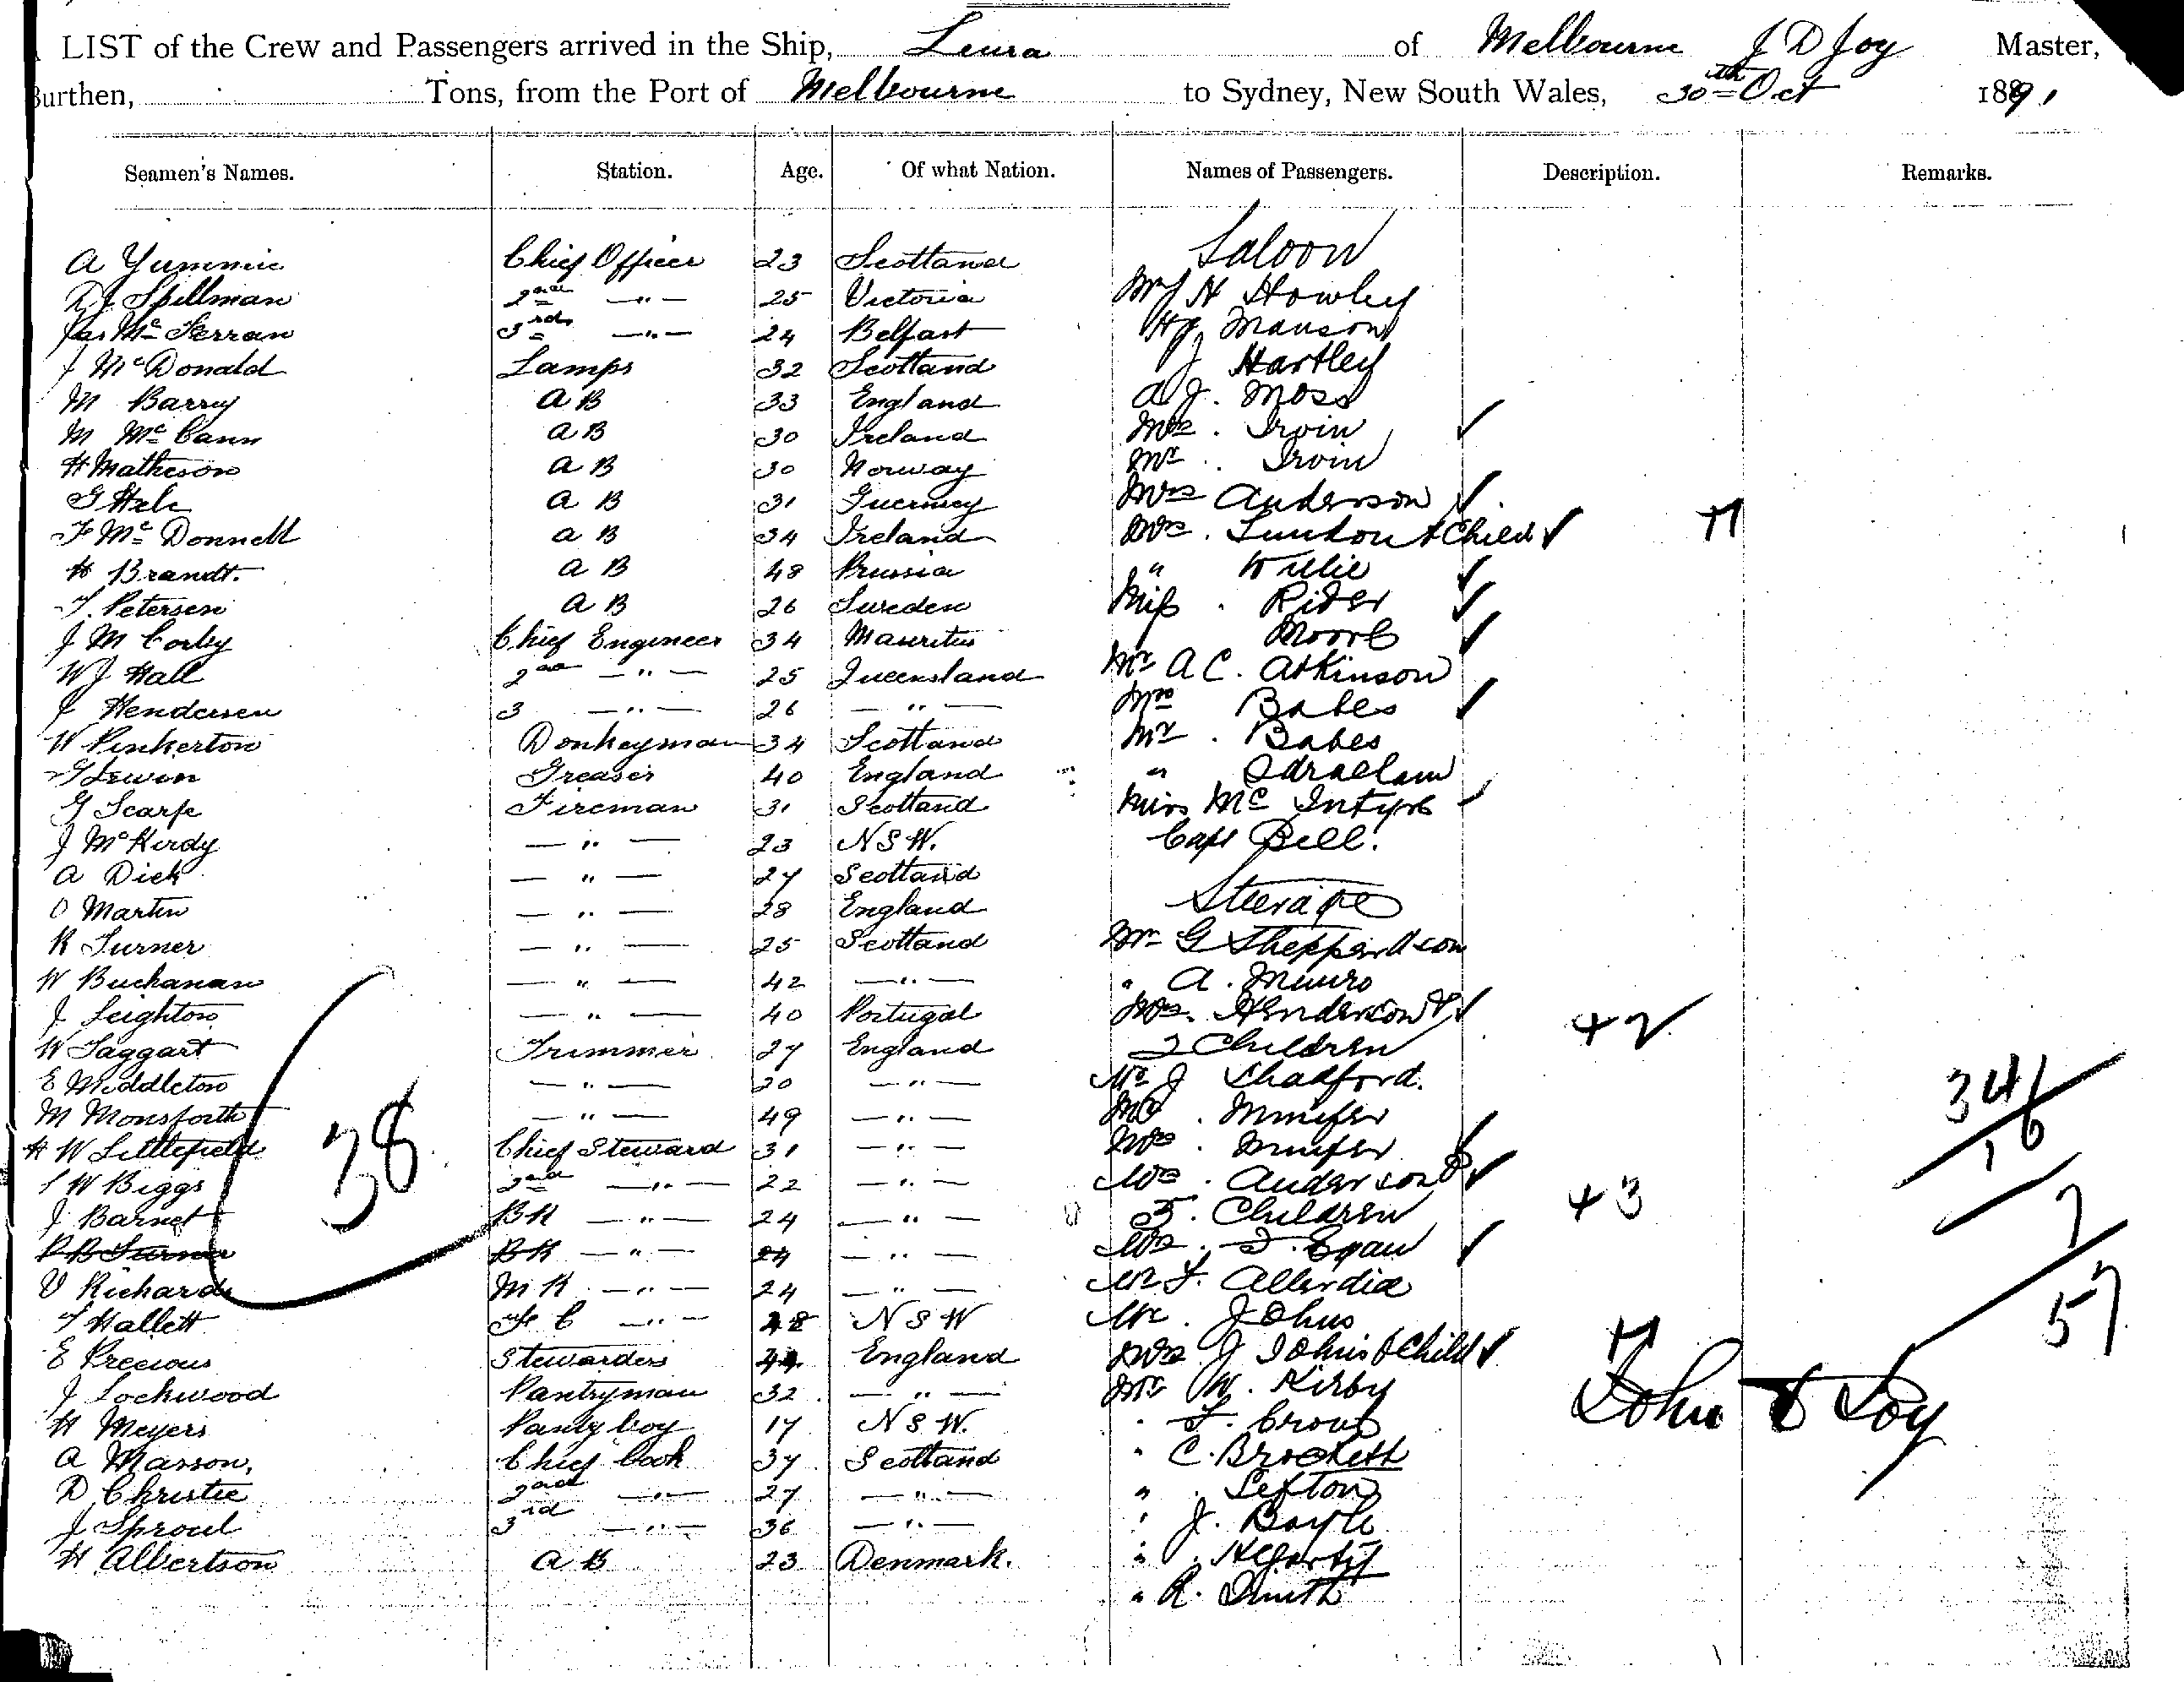 LIST of the Crew and Passengers arrived in the Ship, Leura of Melbourne J D Joy Master,
Burthen, Tons, from the Port of Melbourne to Sydney, New South Wales, 30th Oct 1891
Seamen's Names. Station. Age. Of what Nation. Names of Passengers. Description. Remarks.
Saloon
A Yummie Chief Officer 23 Scotland
D J Spillman 2nd —"— 25 Victoria Mr J H Howley
Jas Mc Ferran 3rd —"— 24 Belfast H J Manson
J McDonald Lamps 32 Scotland J Hartley
M Barry A B 33 England A J. Moss
M Mc Cann A B 30 Ireland Mrs. Irvin
H Matheson A B 30 Norway Mr. Irvin
G Hele A B 31 Guernsey Mrs Anderson
F Mc Donnell A B 34 Ireland Mrs. & Child +1
H Brandt. A B 48 Prussia " Willie
T. Petersen A B 26 Sweden Miss. Rider
J M Corby Chief Engineer 34 Mauritius Moore
W J Hall 2nd —"— 25 Queensland Mr A C. Atkinson
J Hendersen 3 —"— 26 —"— Mrs Babes
W Pinkerton Donkeyman 34 Scotland Mr. Babes
G Lewin Greaser 40 England "
G Scarfe Fireman 31 Scotland Miss Mc Intyre
J McKirdy —"— 23 N S W. Capt Bell.
A Dick —"— 27 Scotland
Steerage
O Martin —"— 28 England
R Turner —"— 25 Scotland Mr G Sheppardson
W Buchanan —"— 42 —"— " A. Munro
J Leighton —"— 40 Portugal Mrs. Henderson &
W Taggart Trimmer 27 England 2 Children +2
E Middleton —"— 20 —"— Mr J Shadford.
M Monsforth —"— 49 —"— Mr. Minifer 34
H W Littlefield Chief Steward 31 —"— Mrs. Minifer 16
S W Biggs 2nd —"— 22 —"— Mrs. Anderson &
38
J Barnet BK —"— 24 —"— 3. Children +3 7
P B Turner BK —"— 24 —"— Mrs. J. Egan
V Richards M R —"— 24 —"— Mr F. Allerdice
T Hallett F C —"— 28 N S W Mr. Johns 57
E Precious Stewardess England Mrs J Johns & Child +1
J Lockwood Pantryman 32 —"— Mr W. Kirby
John D Joy
H Meyers Panty boy 17 N S W. "
A Masson, Chief Cook 37 Scotland " C. Brockett
D Christie 2nd —"— 27 —"— ". Sefton
J Sproul 3rd —"— 36 —"— " J. Boyle
H Albertson A B 23 Denmark. ". Hegarty
" R. Smith